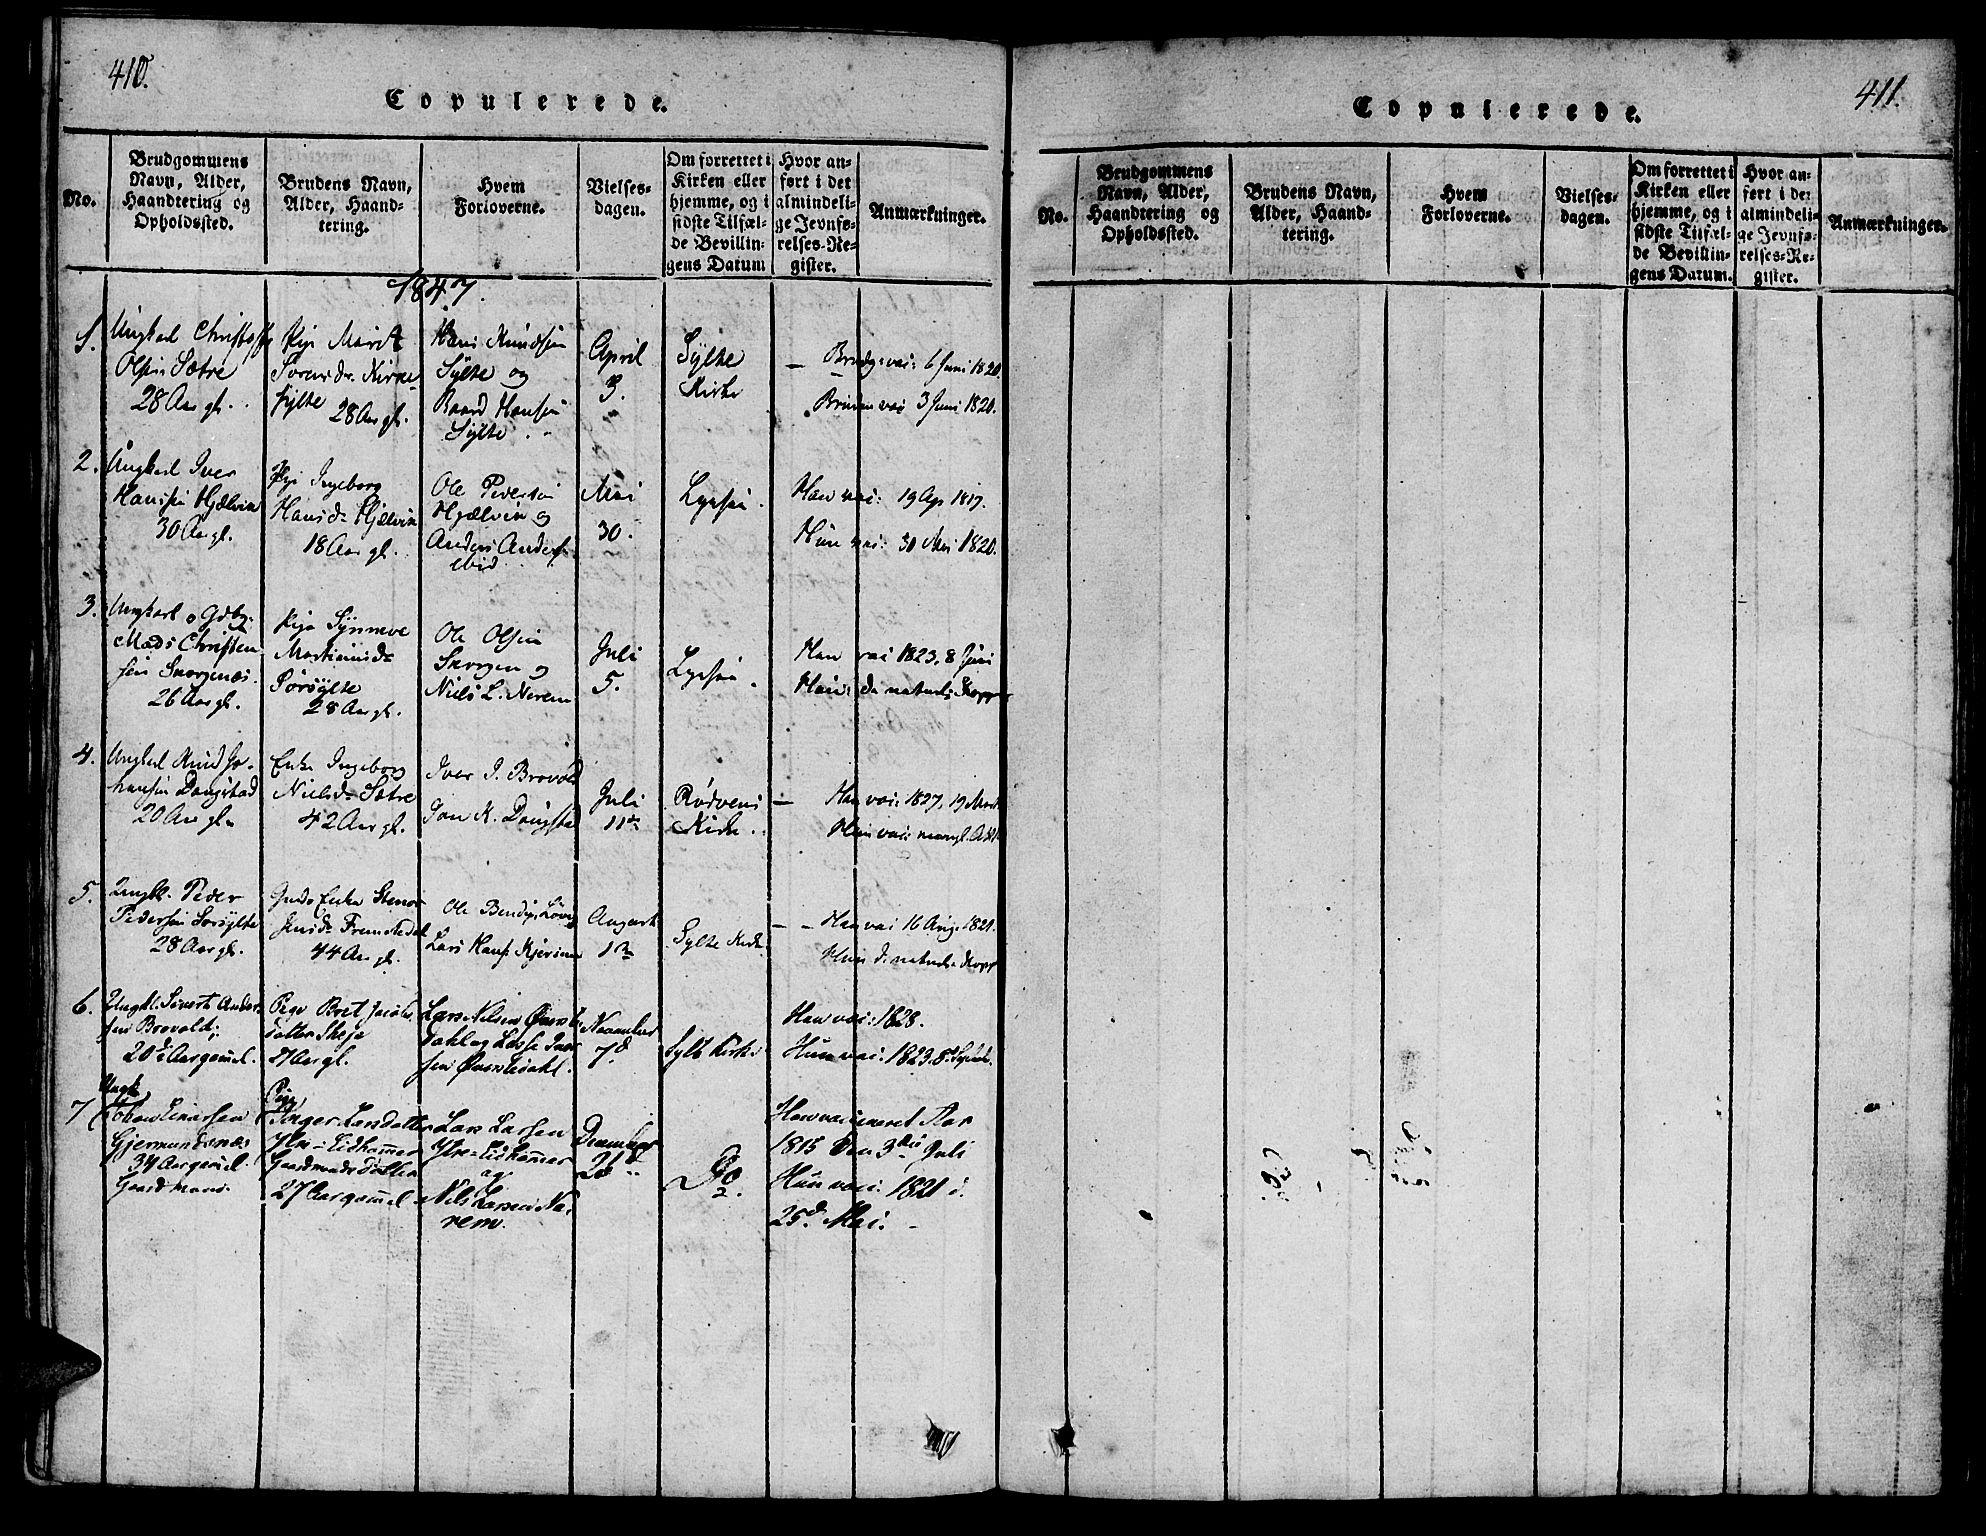 410.
Copulerede.
No.
Brudgommens
Navn, Alder,
Haandtering og
Opholdssted.
Brudens Navn,
Alder, Haand-
tering.
Hvem
Forloverne.
Vielses-
dagen.
Om forrettet i
Kirken eller
hjemme, og i
sidste Tilfæl-
de Bevillin-
gens Datum
Hvor an-
ført i det
almindeli-
ge Jevnfø-
relses-Re-
gister.
Anmærkninger.
1847.
1.
Ungkarl Christoffer
Olsen Sætre
28 Aar gl.
Pige Marit
Kirke-
sylte 28 Aar gl.
Hans Knudsen
Sylte og
Baard Hansen
Sylte.
April
3.
Sylte
Kirke
— Brudg: vac: 6 Juni 1820.
Bruden vac 3 Juni 1820.
2.
Ungkarl Iver
Hansen Hjelvin
30 Aar gl.
Pige Ingeborg
Hansd. Hjelvin
18 Aar gl.
Ole Pedersen
Hjælvin og
Anders Anders.
ibid.
Mai
30.
Han vac: 19 Ap 1817.
Hun vac: 30 Mai 1820.
3.
Ungkarl o Gdbr.
Mads Christen
sen Skorgenæs.
26 Aar gl.
Pige Synneve
Martinusd.
Sørsylte
28 Aar gl.
Ole Olsen
Skorgen og
Niels L. Nerem
Juli
5.
Han vac 1823, 8 Juni
Hun: de naturl: Kopper
4.
Ungkarl Knud Jo-
hansen Daugstad
20 Aar gl.
Enke Ingeborg
Nielsd. Sætre
42 Aar gl.
Iver I. Brovold
Jon K. Daugstad
Juli
11te
Rødvens
Kirke.
— Han vac: 1827, 19 Marts
Hun vac: mangl. Att.
5.
Ungk. Peder
Pedersen Sørsylte
28 Aar gl.
Enke
Jensd.
44 Aar gl.
Ole
Lars Hans.
August
1ste
Sylte Kirke
— Han vac 16 Aug. 1821.
Hun d. naturl. Kopp
6.
Ungkl. Sivert Anders-
sen Brovold;
20 Aar gammel.
Pige Beret Jacobs-
datter Skeje
27 Aar gl.
Lars Nilsen
dahl og Lasse Iver
sen
November
7d
Sylte Kirke
Han vac: 1828.
Hun vac: 1823. 8d Septbr.
7
Ungk.
Tobias Einersen
Gjermundsnæs
34 Aar gammel.
Gaardmand.
Pige
Inger Larsdatter
Ytre-Eidhammer
Gaardmands Datter
27 Aar gammel
Lars Larsen
Ytre-Eidhammer
og
Nils Larsen Næ-
rem.
December
28d
Do.
Han vaccineret Aar
1815 den 3die Juli
Hun vac: 1821 d.
25d Mai.
411.
Copulerede.
No.
Brudgommens
Navn, Alder,
Haandtering og
Opholdssted.
Brudens Navn,
Alder, Haand-
tering.
Hvem
Forloverne.
Vielses-
dagen.
Om forrettet i
Kirken eller
hjemme, og i
sidste Tilfæl-
de Bevillin-
gens Datum.
Hvor an-
ført i det
almindeli-
ge Jevnfø-
relses-Re-
gister.
Anmærkninger.